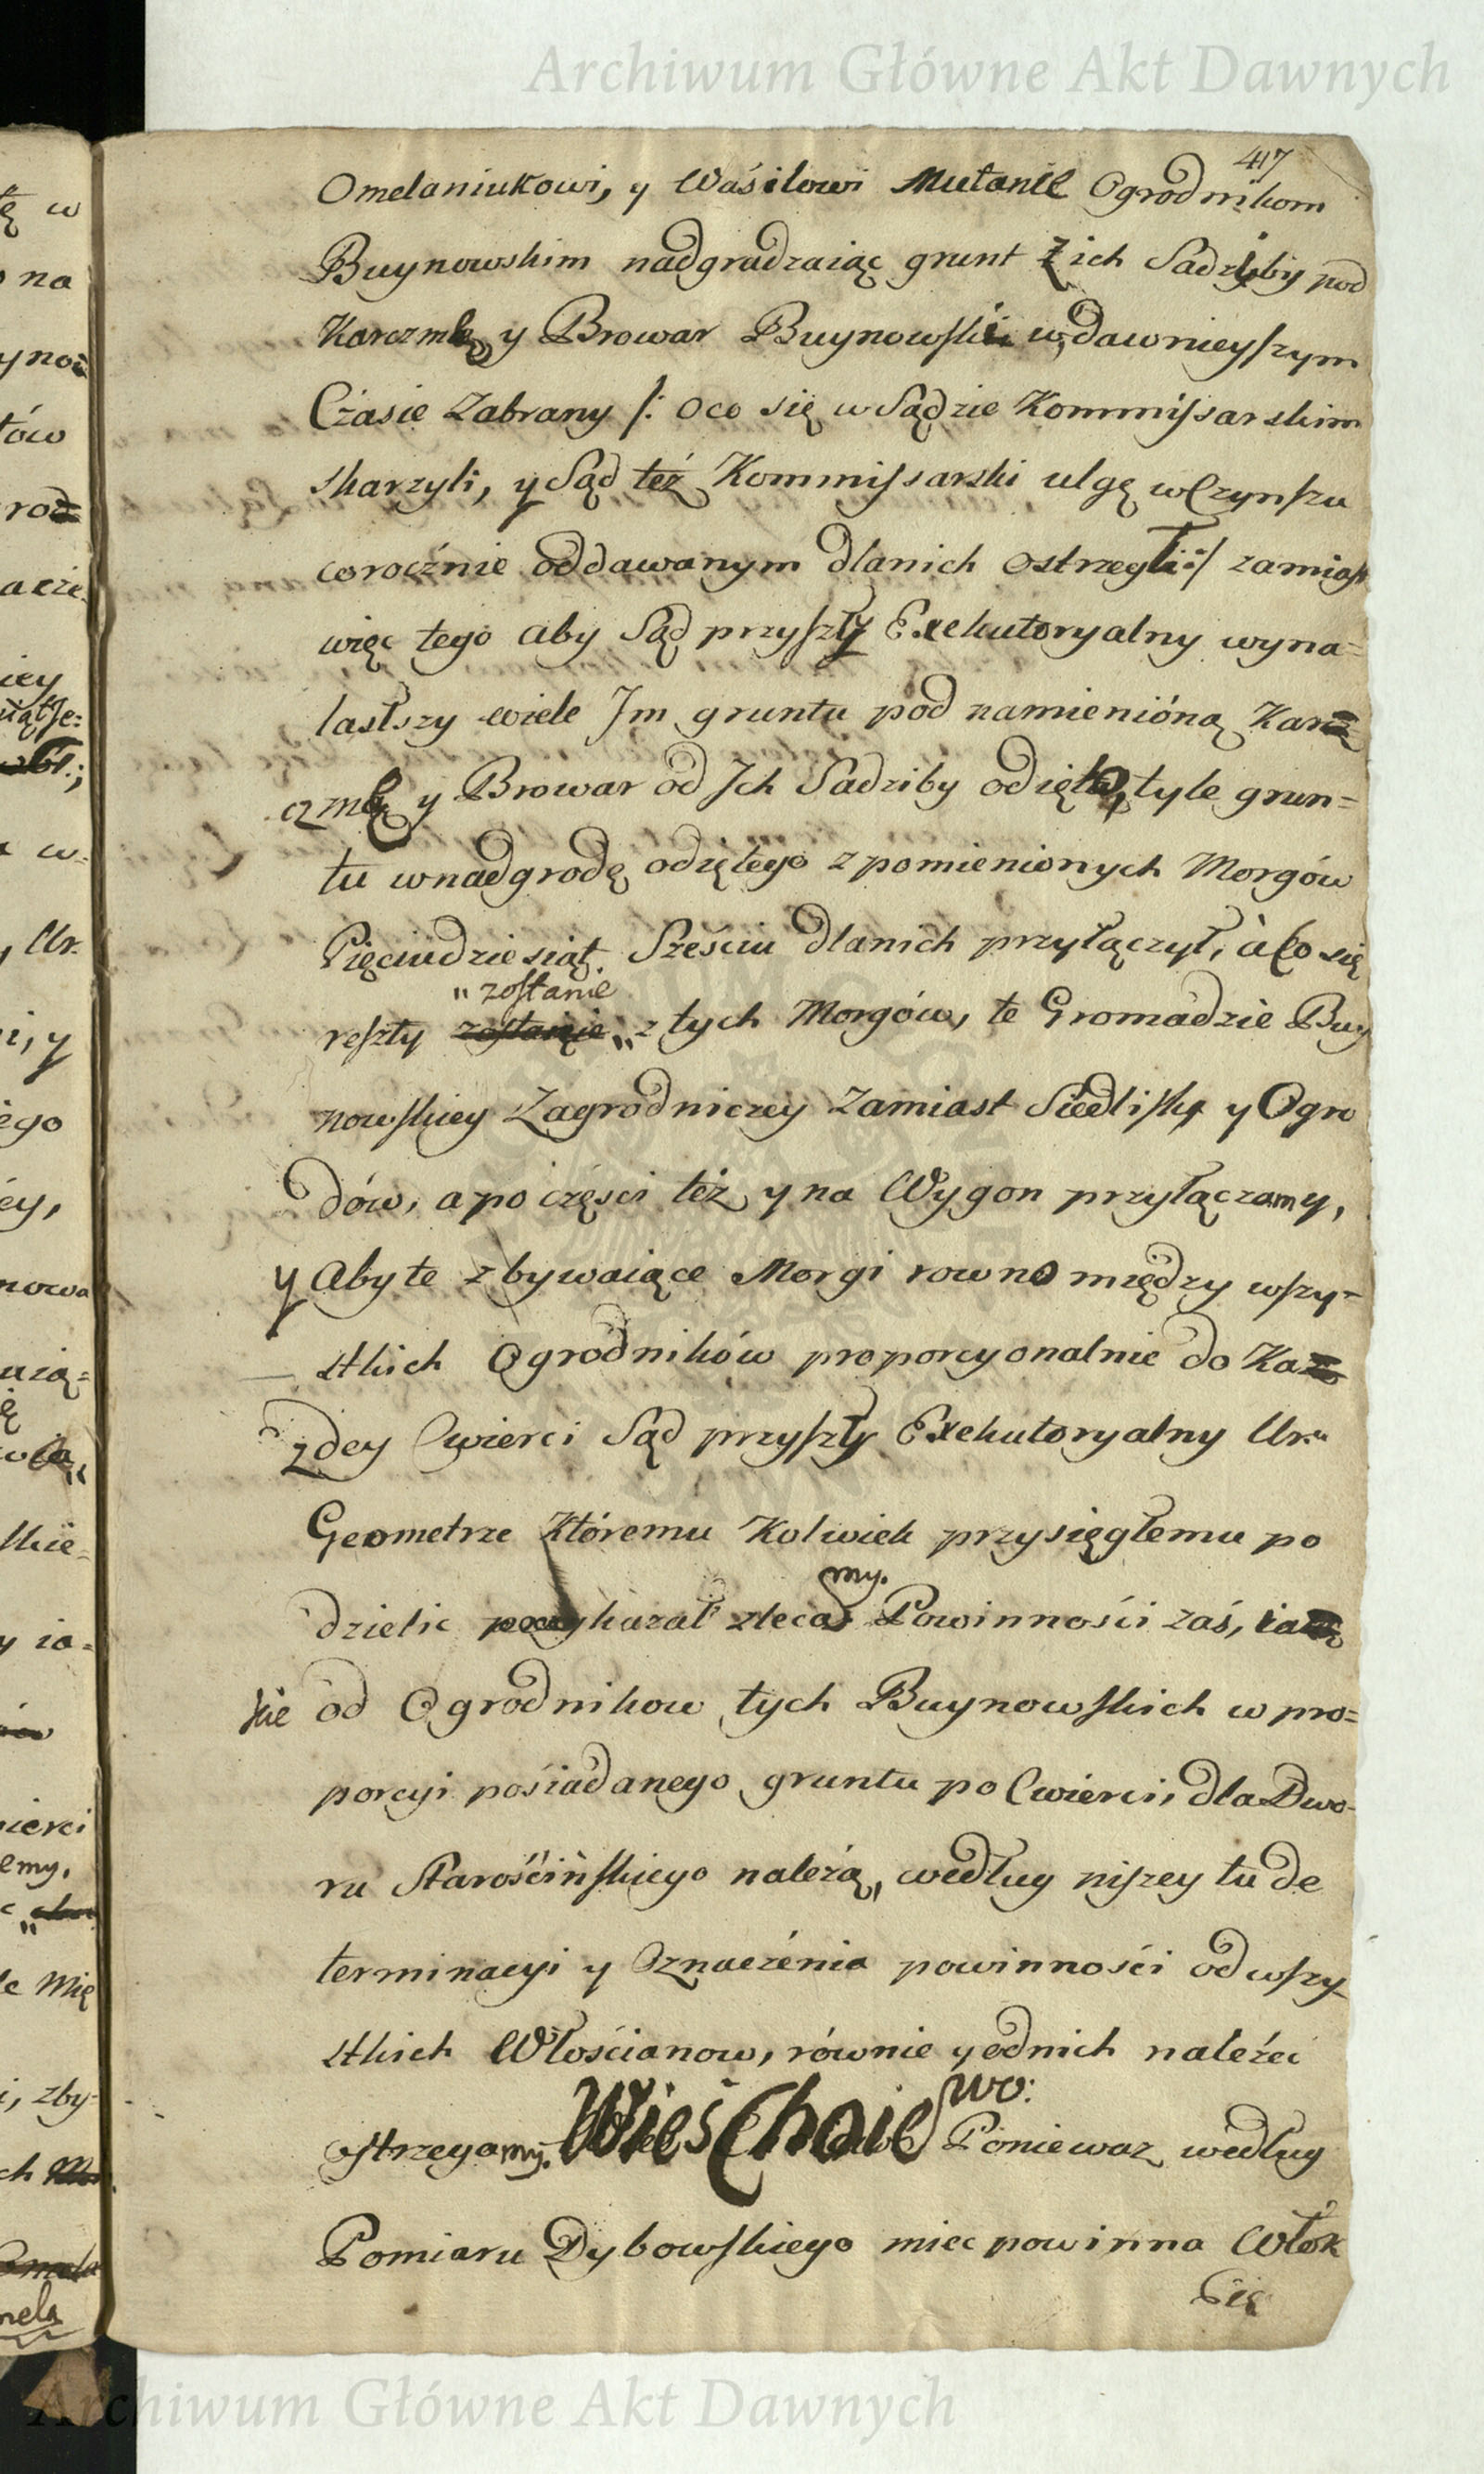 Archiwum Główne Akt Dawnych
417
Omelaniukowi, y Waśilowi Mutanie Ogrodnikom
Buynowskim nadgradzaiąc grunt z ich Sadziby pod
Karczmę y Browar Buynowski w dawnieyszym
Cźasie Zabrany /: oco się w Sądzie Kommissarskim
skarzyli, y Sąd też Kommissarski ulgę w Czynszu
corocźnie oddawanym dlanich ostrzegł :/ zamiast
więc tego aby Sąd przyszły Exekutoryalny wyna=
lasłszy wiele Im gruntu pod namienióną Kar
czmę y Browar od Ich Sadziby odięto, tyle grun=
tu w nadgrodę odiętego z pomienionych Morgów
Pięciudziesiąt Sześciu dlanich przyłączył, à Co się
" zostanie
reszty zostanie " z tych Morgów, te Gromadzie Buy
nowskiey Zagrodniczey Zamiast Siedliska y Ogro
dów, a po częsci też y na Wygon przyłączamy,
y Aby te zbywaiące Morgi rowno między wszy=
stkich Ogrodników proporcyonalnie do Ka
żdey Cwierci Sąd przyszły Exekutoryalny Ur.
Geometrze Któremu Kolwiek przysięgłemu po
my.
dzielic kazał zleca Powinności zaś, ia
kie od Ogrodnikow tych Buynowskich w pro=
porcyi pośiadanego gruntu po Cwierci, dla Dwo-
ru Starościńskiego naleźą, według niszey tu de
terminacyi y Oznacźenia powinności od wszy
stkich Włościanow, równie y odnich naleźeć
ostrzegamy. Wieś Choiewo: Poniewaz według
Pomiaru Dybowskiego miec powinna Włok
Pię
Archiwum Główne Akt Dawnych